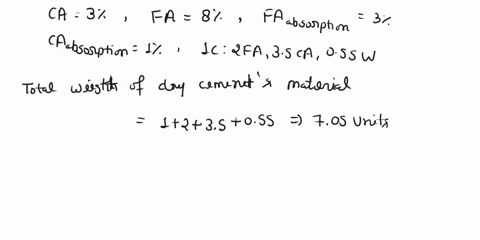 CA = 3% , FA = 8% , FA absorption = 3%
CA absorption = 1% , 1C : 2FA, 3.5 CA, 0.55 W
Total weight of dry cement's material
= 1+2+3.5+0.55 ⇒ 7.05 units